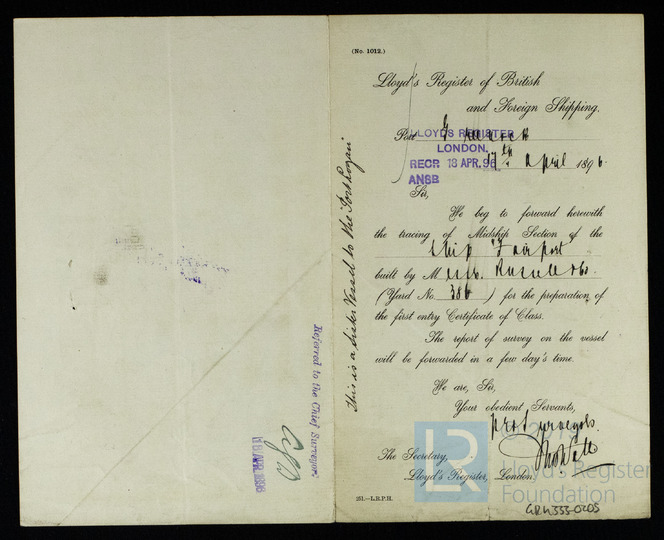 (No. 1012.)
Lloyd's Register of British
and Foreign Shipping.
Port
LLOYD'S REGISTER
LONDON.
RECR 18 APR. 96
ANSB
17th April 1896.
Sir,
We beg to forward herewith
the tracing of Midship Section of the
Ship "Fairport"
built by Messrs. Russell & Co.
(Yard No. 386) for the preparation of
the first entry Certificate of Class.
The report of survey on the vessel
will be forwarded in a few day's time.
We are, Sir,
Your obedient Servants,
The Secretary,
Lloyd's Register, London.
251.—L.R.P.H.
This is a Sister Vessel to the "Port Logan"
Referred to the Chief Surveyor.
18 APR 1896
LR
Lloyd's Register
Foundation
GRK333-0205